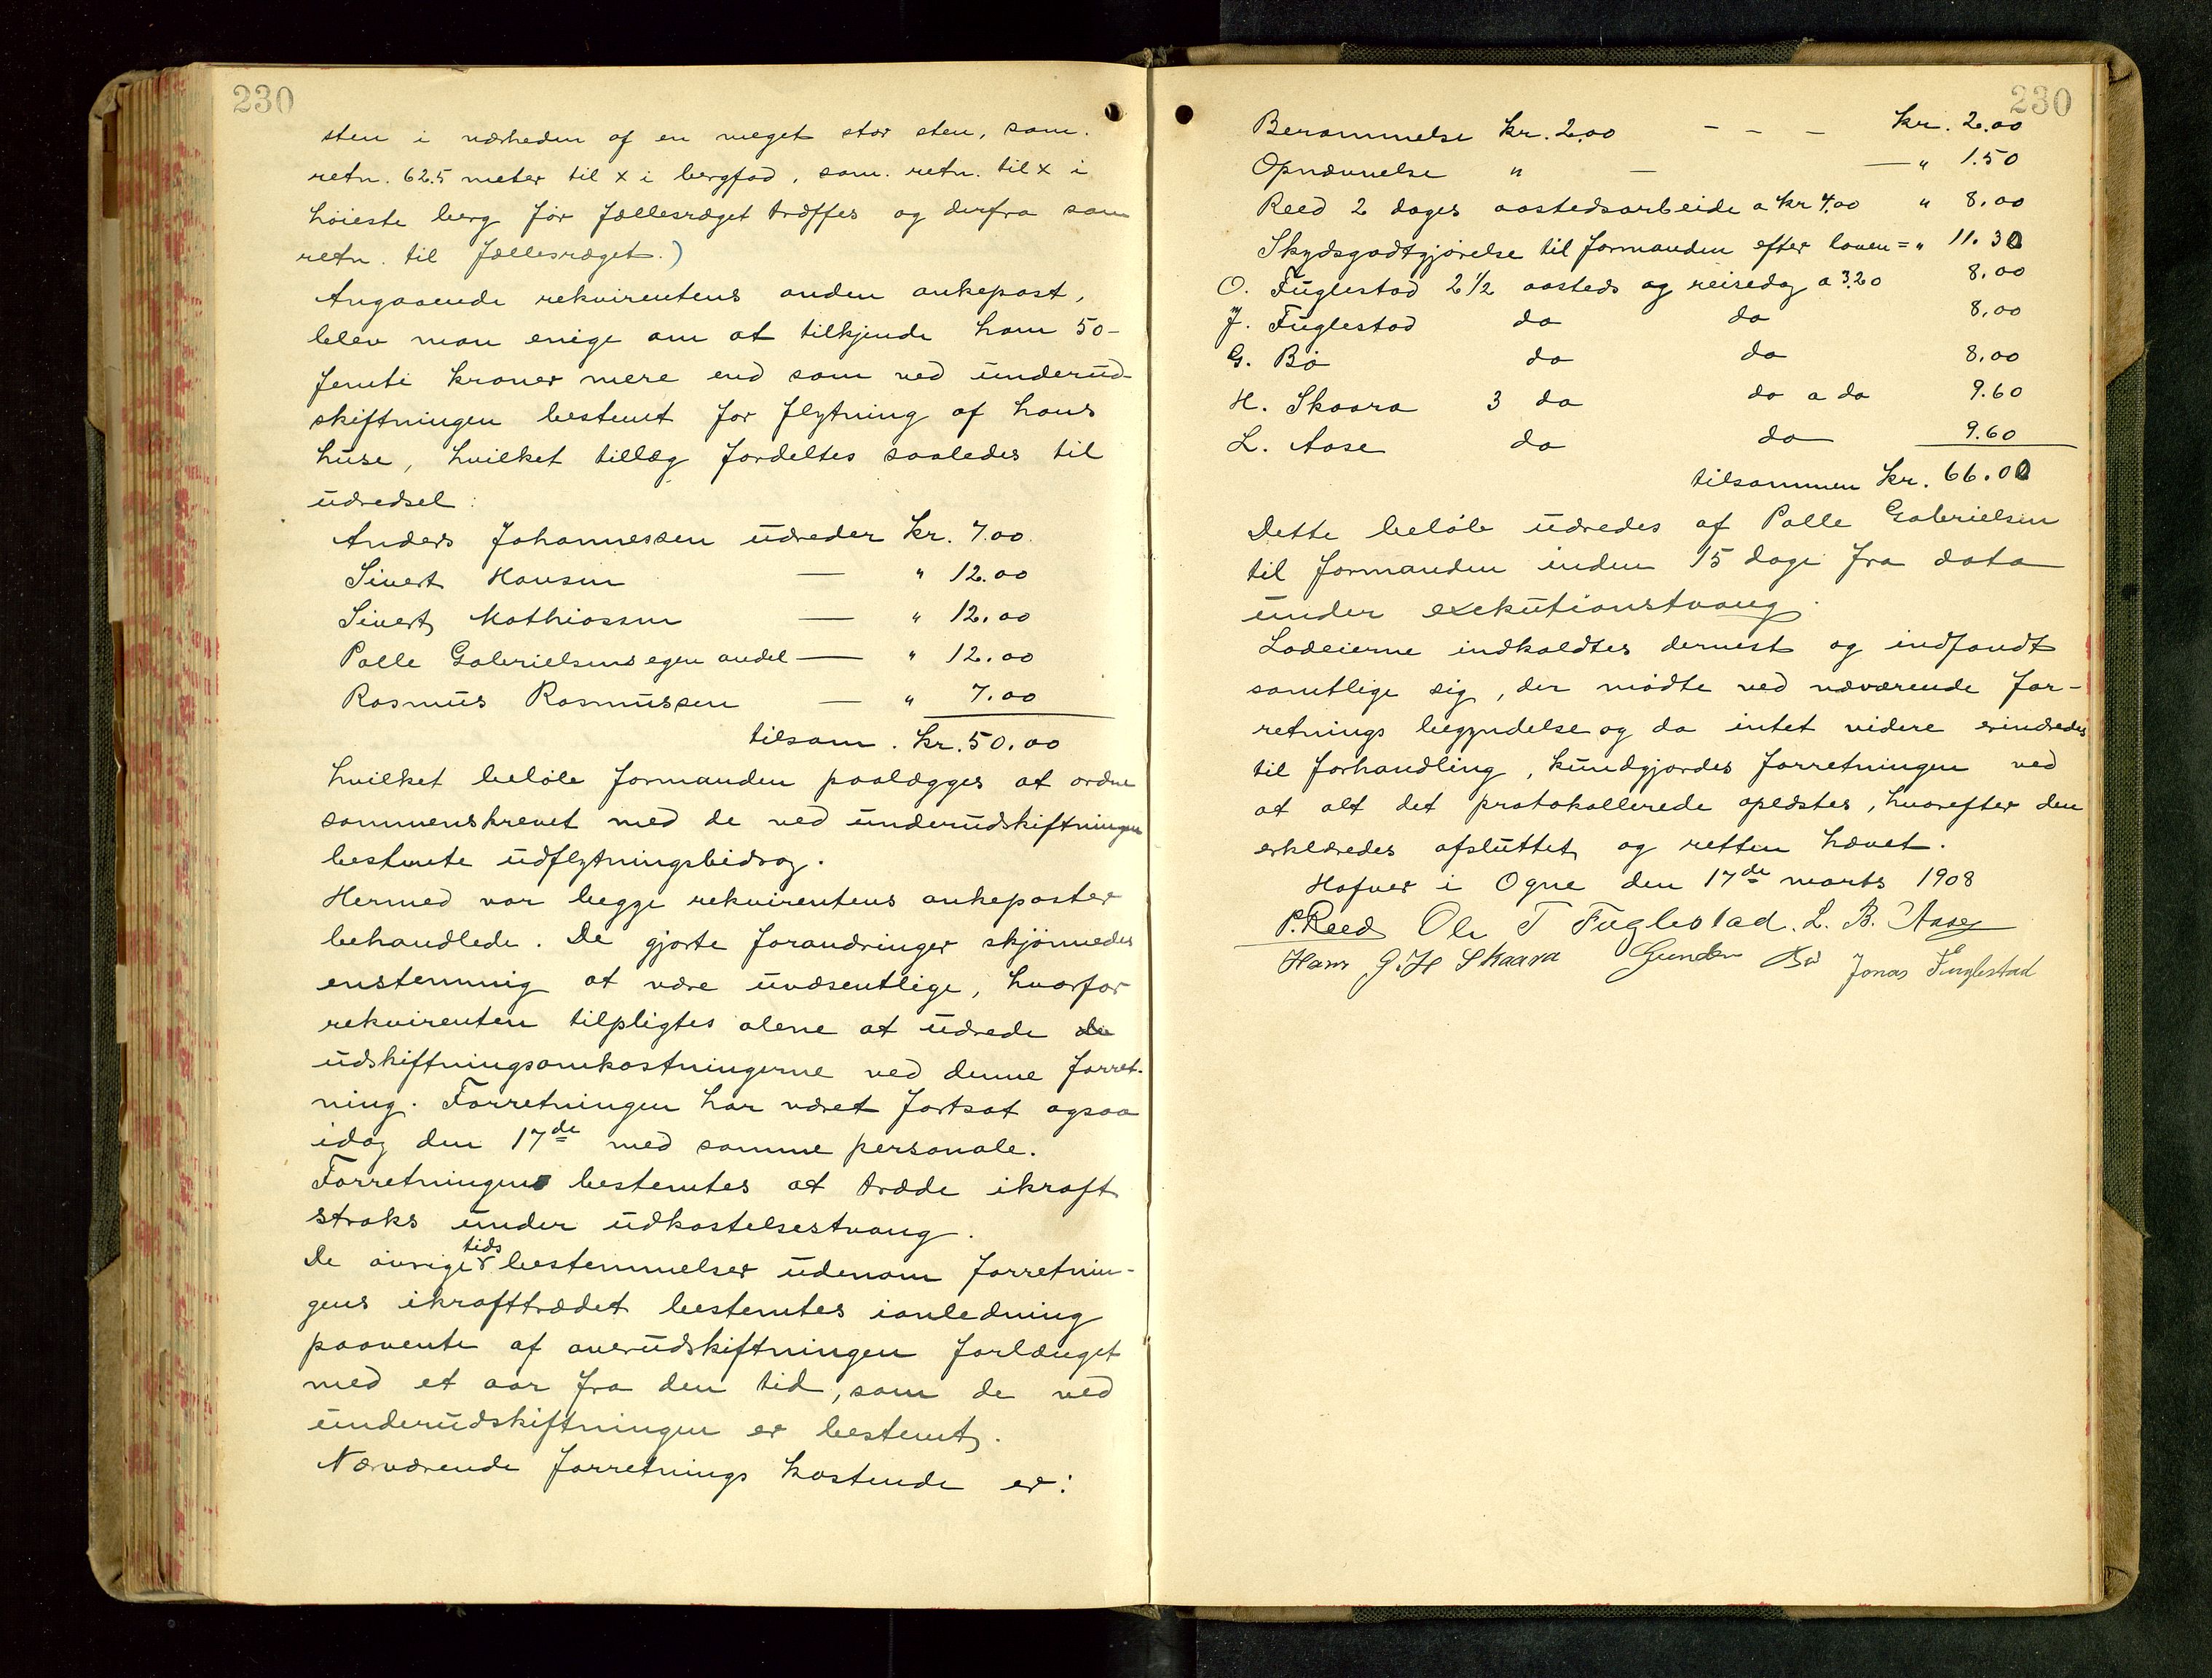 230
sten i nærheden af en meget stor sten, sam.
retn. 62.5 meter til x i bergfod, sam. retn. til x i
høieste berg før fællesræget træffes og derfra sam
retn. til fællesræget.)
Angaaende rekvirentens anden ankepost,
blev man enige om at tilkjende ham 50-
femti kroner mere end som ved underud-
skiftningen bestemt for flytning af hans
huse, hvilket tillæg fordeltes saaledes til
udredsel:
Anders Johannessen udreder kr. 7.00
Sivert Hansen — " 12.00
Sivert Mathiassen — " 12.00
Palle Gabrielsens egen andel — " 12.00
Rasmus Rasmussen — " 7.00
tilsam. kr. 50.00
hvilket beløb formanden paalægges at ordne
sammenskrevet med de ved underudskiftningen
bestemte udflytningsbidrag.
Hermed var begge rekvirentens ankeposter
behandlede. De gjorte forandringer skjønnedes
enstemmig at være uvæsentlige, hvorfor
rekvirenten tilpligtes alene at udrede de
udskiftningsomkostningerne ved denne forret-
ning. Forretningen har været fortsat ogsaa
idag den 17de med samme personale.
Forretningen bestemtes at træde ikraft
straks under udkastelsestvang.
De øvrige tidsbestemmelser udenom forretnin-
gens ikrafttrædet bestemtes ianledning
paavente af overudskiftningen forlænget
med et aar fra den tid, som de ved
underudskiftningen er bestemt.
Nærværende forretnings kostende er:
230
Berammelse kr. 2.00 - - - kr. 2.00
Opnævnelse " — — " 1.50
Reed 2 dages aastedsarbeide a kr 4.00 " 8.00
Skydsgodtgjørelse til formanden efter loven = " 11.30
O. Fuglestad 2 1/2 aasteds og reisedag a 3.20 8.00
J. Fuglestad do do 8.00
G. Bø do do 8.00
H. Skaara 3 do do a do 9.60
L. Aase do do 9.60
tilsammen kr. 66.00
Dette beløb udredes af Palle Gabrielsen
til formanden inden 15 dage fra dato
under exekutionstvang.
Lodeierne indkaldtes dernest og indfandt
samtlige sig, der mødte ved nærværende for-
retnings begyndelse og da intet videre erindredes
til forhandling, kundgjordes forretningen ved
at alt det protokollerede oplæstes, hvorefter den
erklæredes afsluttet og retten hævet.
Hafver i Ogne den 17de marts 1908
P. Reed Ole T Fuglestad. L. B. Aase
Hans G. H Skaara Gunder Bø Jonas Fuglestad